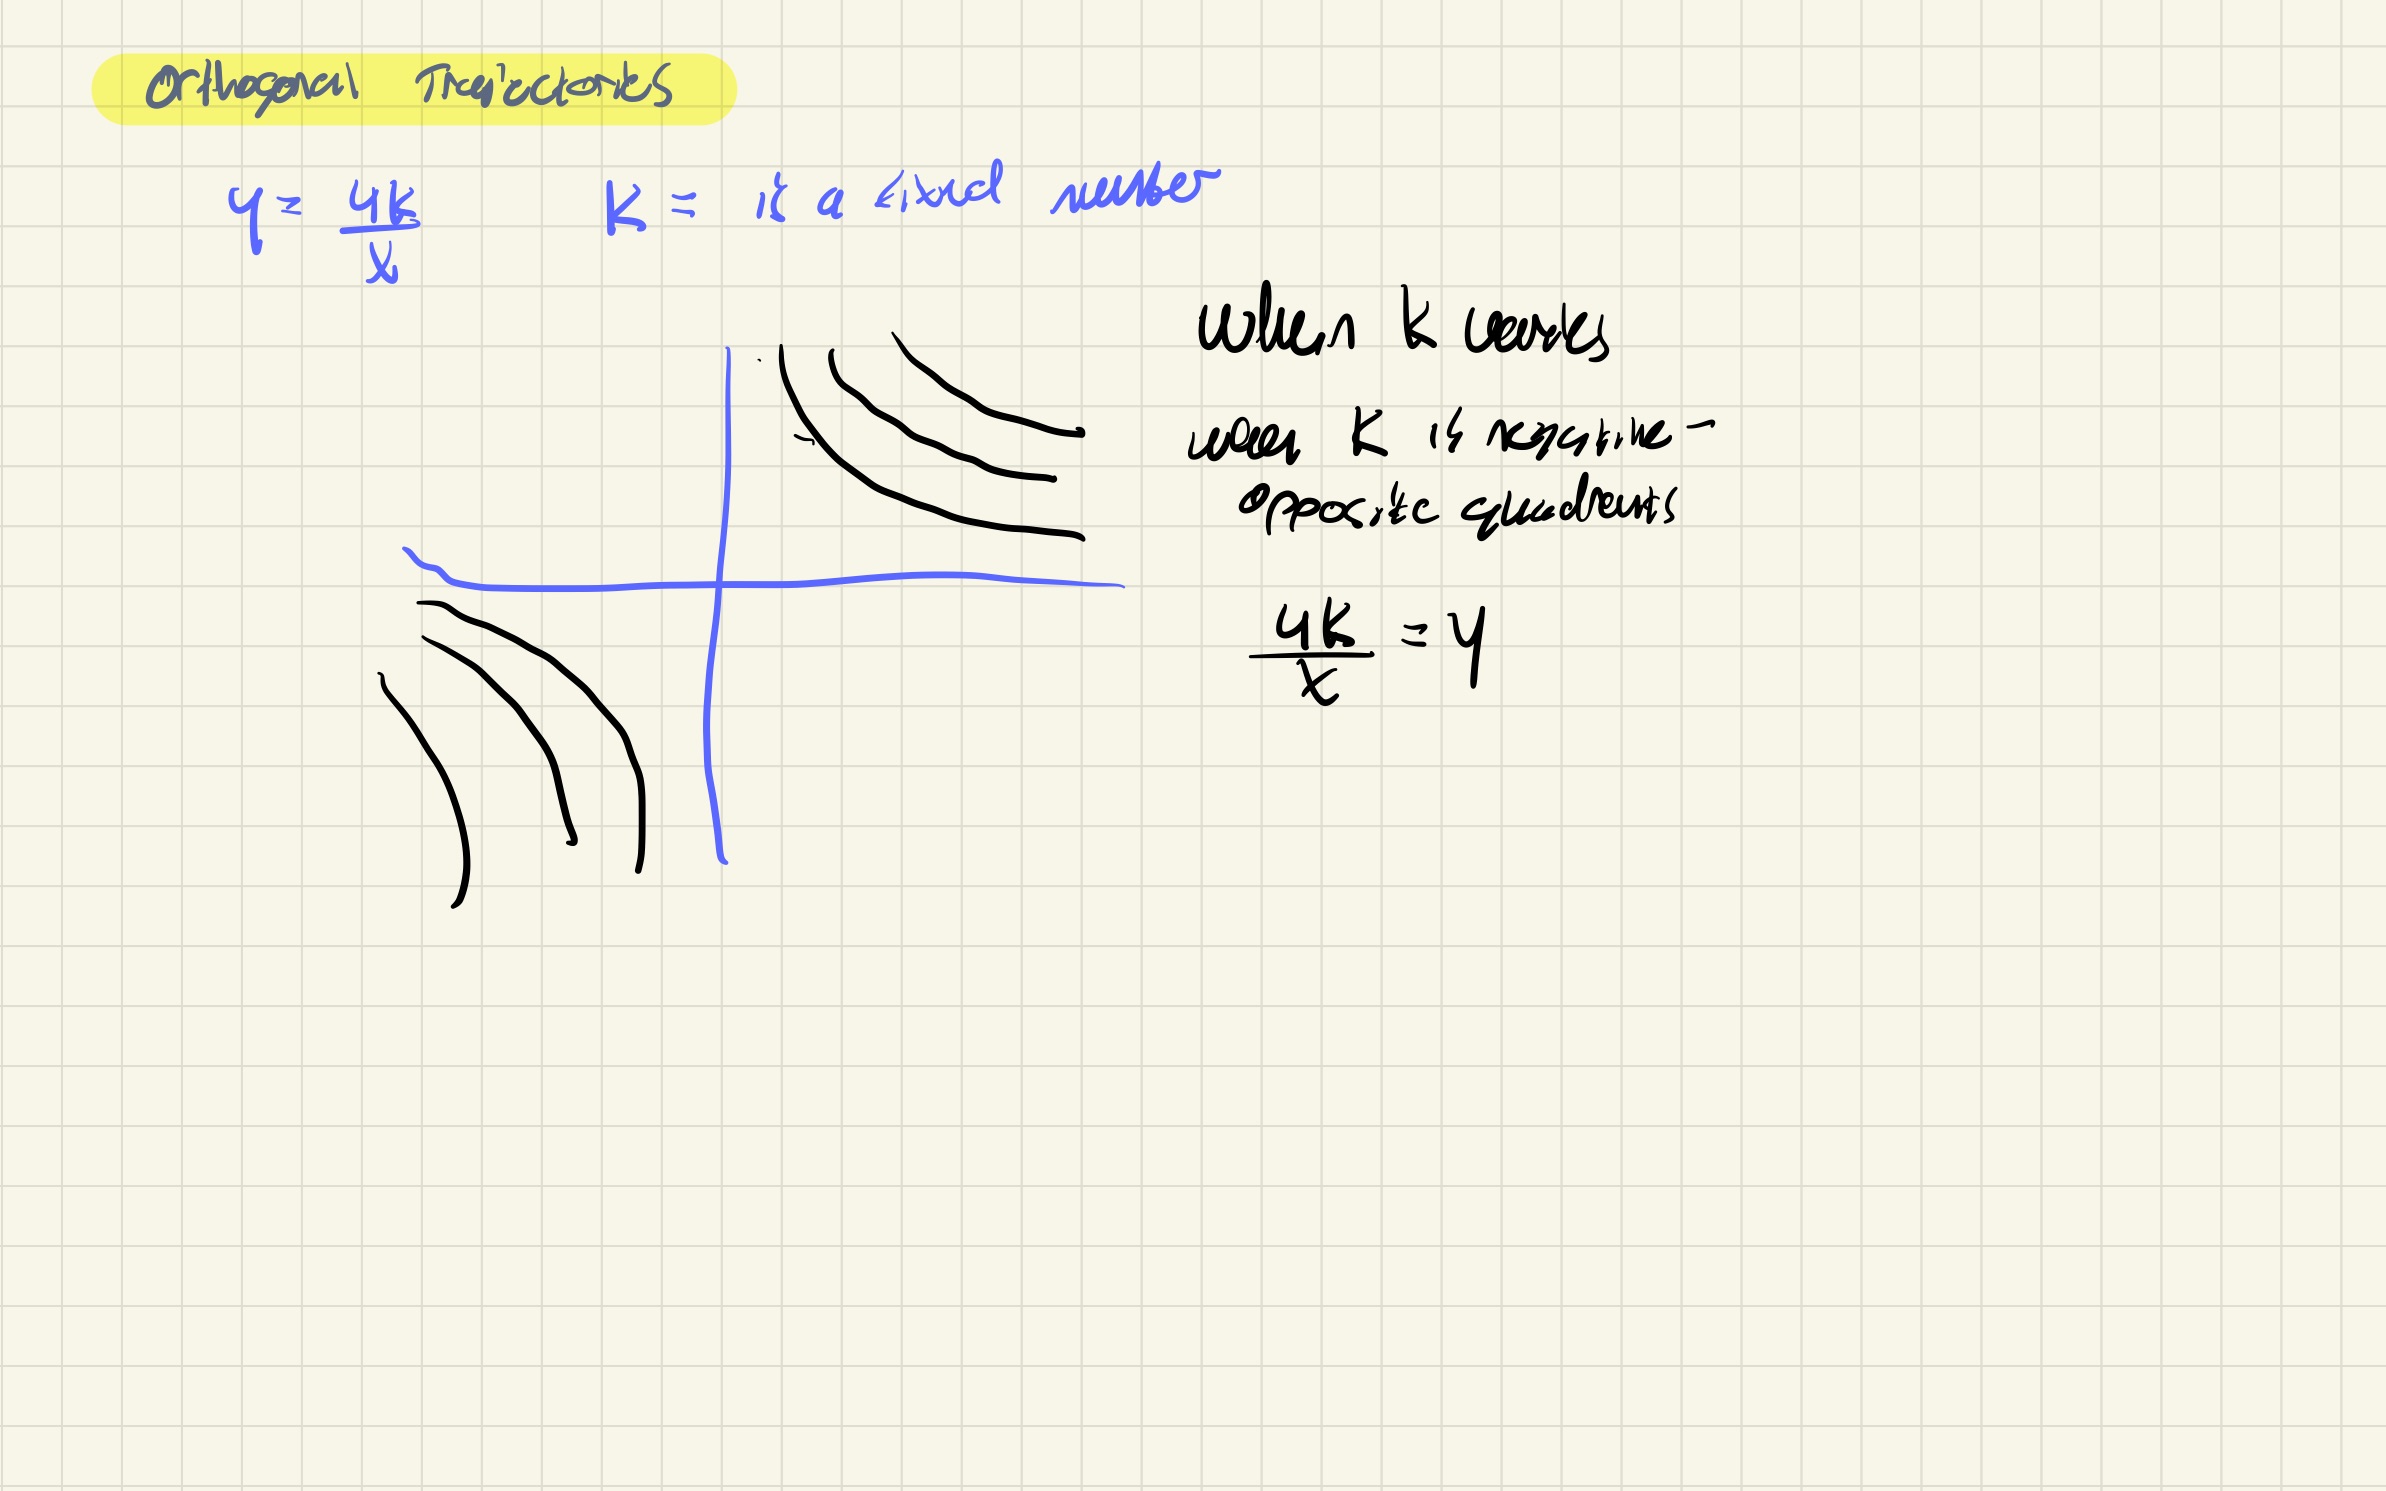 Orthogonal Trajectories
y = 4k/x   K = is a fixed number
when K varies
when K is negative -
opposite quadrants
4k/x = y